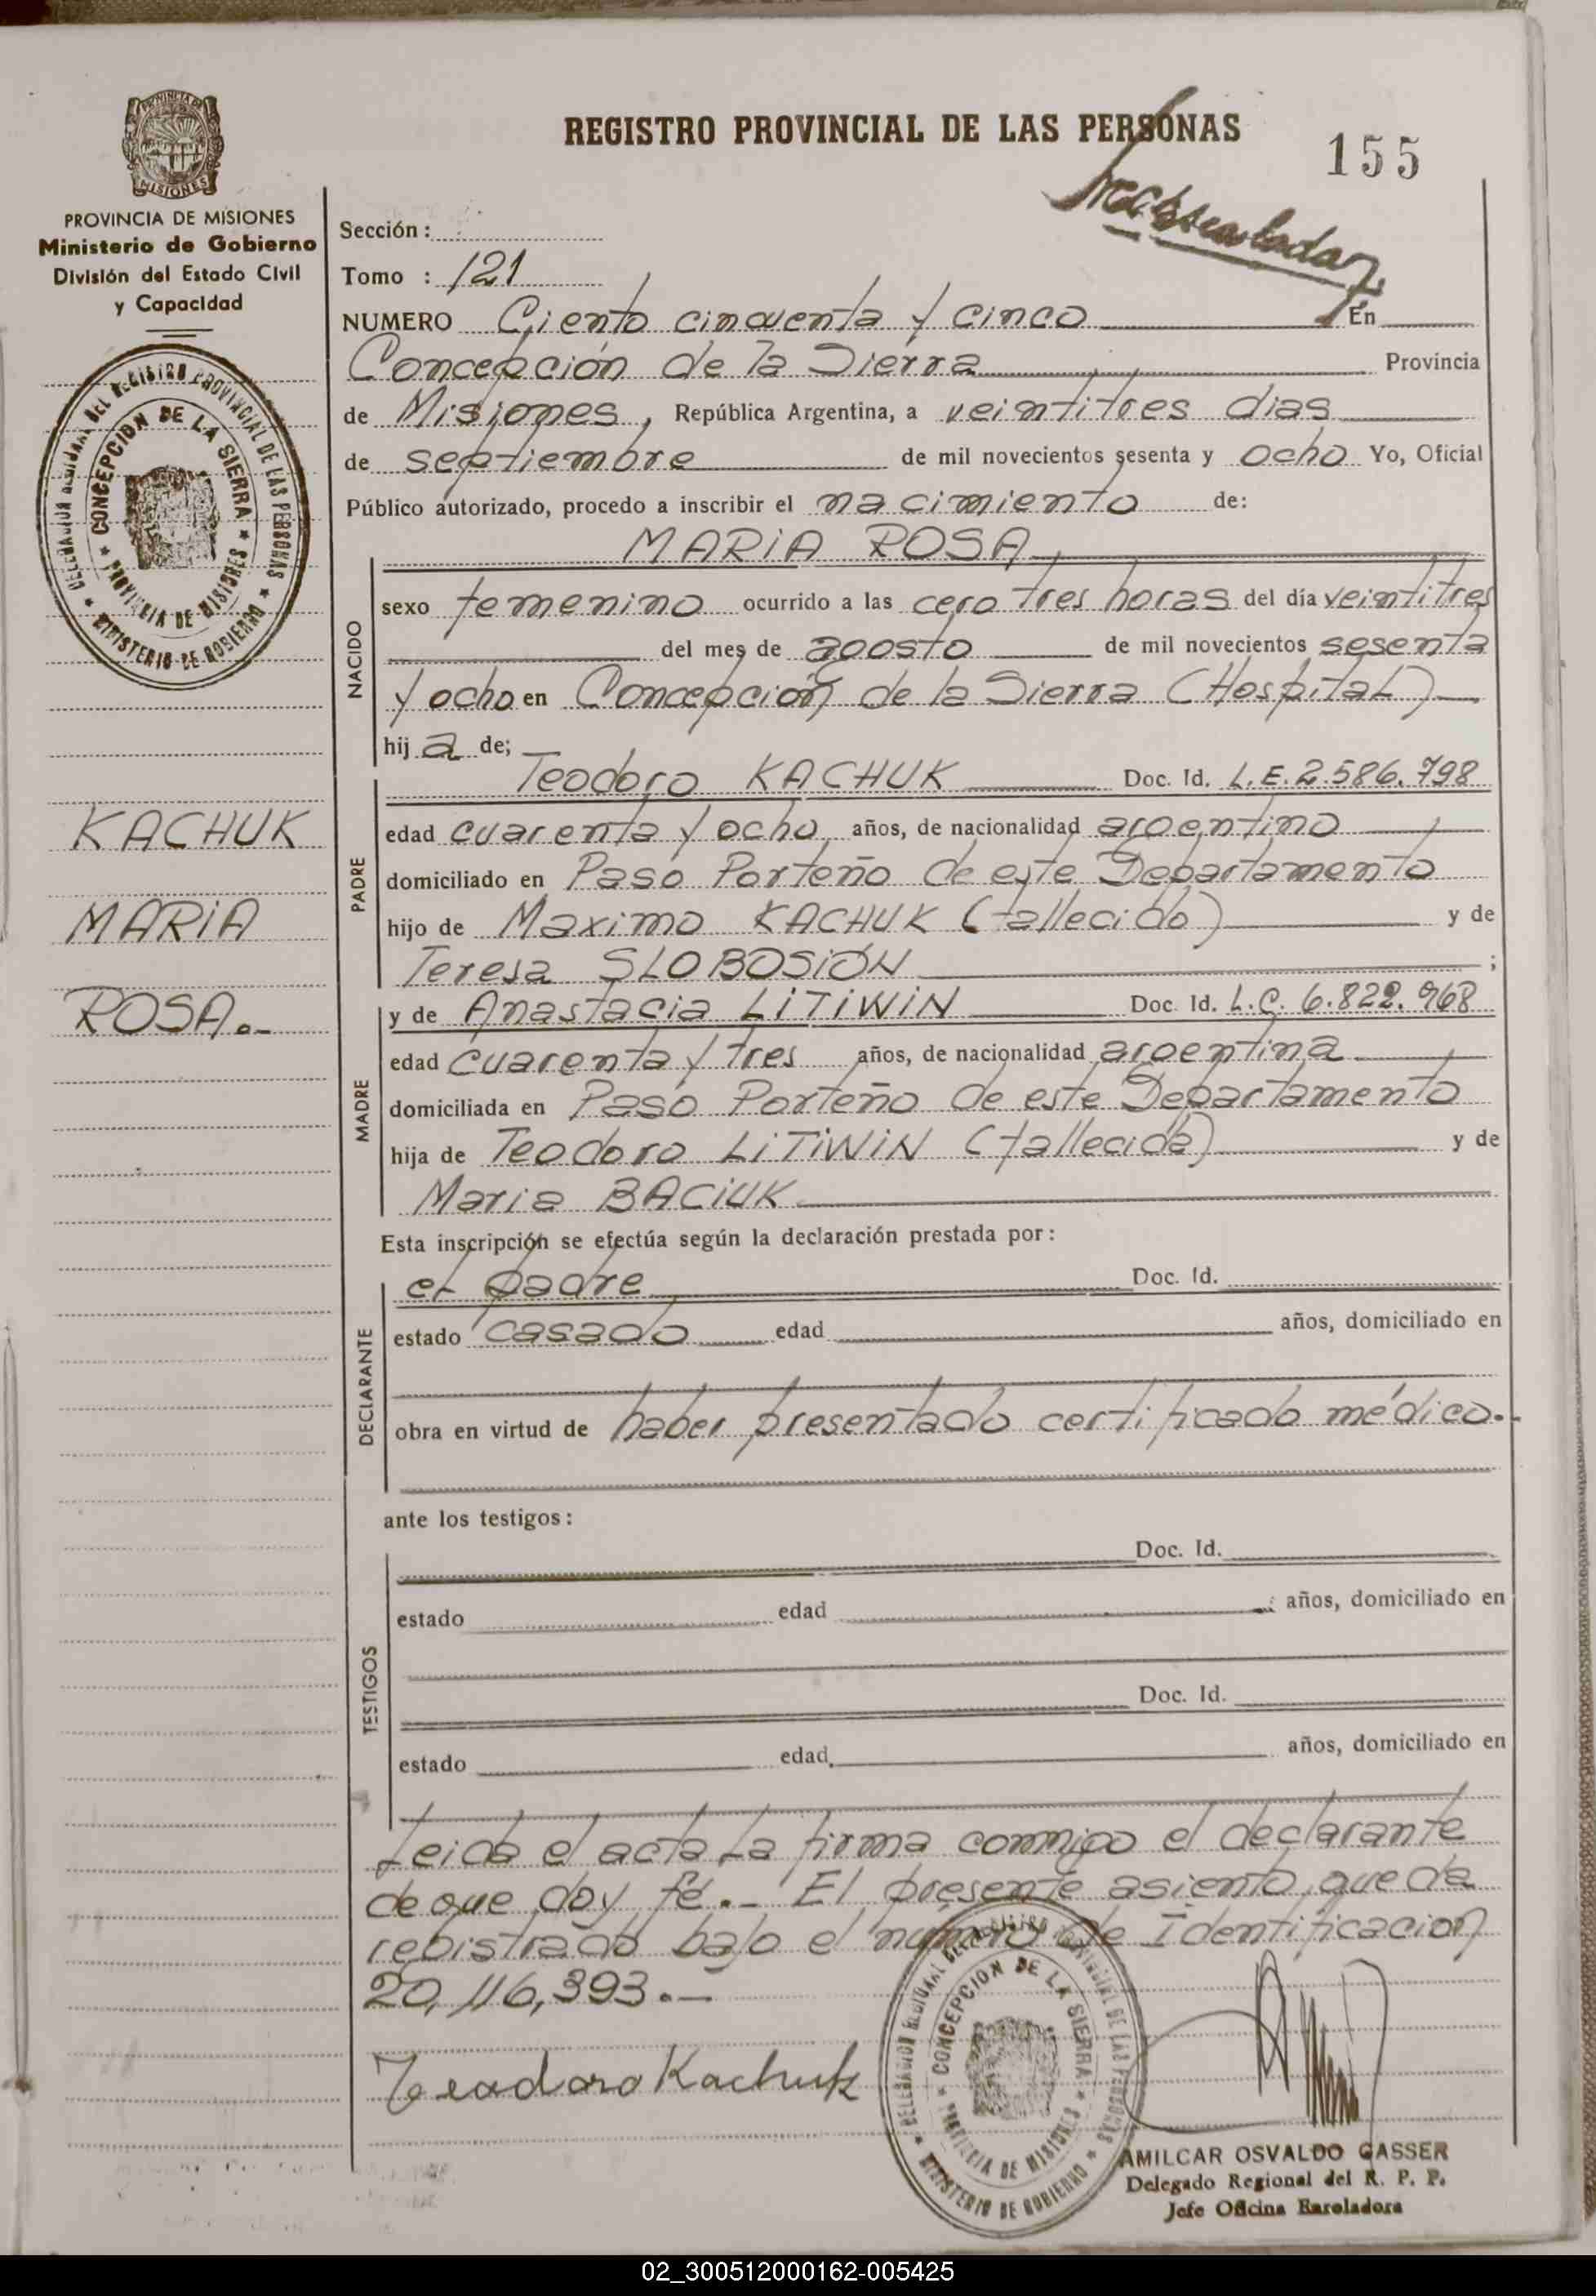 REGISTRO PROVINCIAL DE LAS PERSONAS
155
PROVINCIA DE MISIONES
Ministerio de Gobierno
División del Estado Civil
y Capacidad
DELEGACION REGIONAL DEL REGISTRO PROVINCIAL DE LAS PERSONAS
CONCEPCION DE LA SIERRA
PROVINCIA DE MISIONES
MINISTERIO DE GOBIERNO
KACHUK
MARIA
ROSA.-
Sección :
Tomo : 121
NUMERO Ciento cincuenta y cinco En
Concepción de la Sierra Provincia
de Misiones, República Argentina, a veintitres dias
de septiembre de mil novecientos sesenta y ocho Yo, Oficial
Público autorizado, procedo a inscribir el nacimiento de:
MARIA ROSA
NACIDO
sexo femenino ocurrido a las cero tres horas del día veintitres
del mes de agosto de mil novecientos sesenta
y ocho en Concepción de la Sierra (Hospital)
hij a de;
PADRE
Teodoro KACHUK Doc. Id. L.E.2.586.798
edad cuarenta y ocho años, de nacionalidad argentino
domiciliado en Paso Porteño de este Departamento
hijo de Maximo KACHUK (fallecido) y de
Teresa SLOBOSIÓN ;
MADRE
y de Anastacia LITIWIN Doc. Id. L.C. 6.822.968
edad cuarenta y tres años, de nacionalidad argentina
domiciliada en Paso Porteño de este Departamento
hija de Teodoro LITIWIN (fallecido) y de
Maria BACIUK
Esta inscripción se efectúa según la declaración prestada por:
DECLARANTE
el padre Doc. Id.
estado casado edad años, domiciliado en
obra en virtud de haber presentado certificado médico.-
ante los testigos:
TESTIGOS
Doc. Id.
estado edad años, domiciliado en
Doc. Id.
estado edad años, domiciliado en
Leida el acta La firma conmigo el declarante
de que doy fé.- El presente asiento queda
registrado bajo el número de Identificación
20,116,393.-
Teodoro Kachuk
DELEGACION REGIONAL DEL REGISTRO PROVINCIAL DE LAS PERSONAS
CONCEPCION DE LA SIERRA
PROVINCIA DE MISIONES
MINISTERIO DE GOBIERNO
AMILCAR OSVALDO GASSER
Delegado Regional del R. P. P.
Jefe Oficina Enroladora
02_300512000162-005425